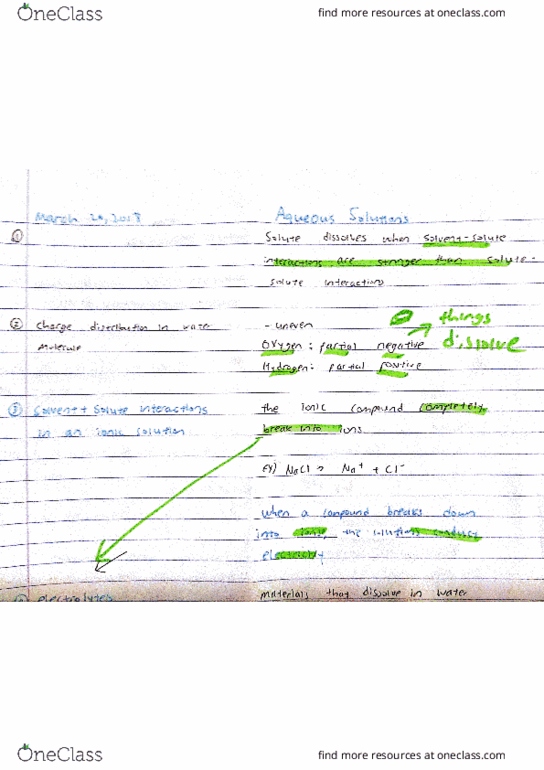 OneClass
find more resources at oneclass.com
March 20, 2018
Aqueous Solutions
① Solute dissolves when solvent-solute
interactions are stronger than solute-
solute interactions
② Charge distribution in water
molecule
- uneven
Oxygen: partial negative
Hydrogen: partial positive
things
dissolve
③ Solvent + Solute interactions
in an ionic solution
the ionic compound completely
break into ions.
ex) NaCl → Na⁺ + Cl⁻
when a compound breaks down
into ions, the solutions conduct
electricity
④ electrolytes
materials that dissolve in water
OneClass
find more resources at oneclass.com